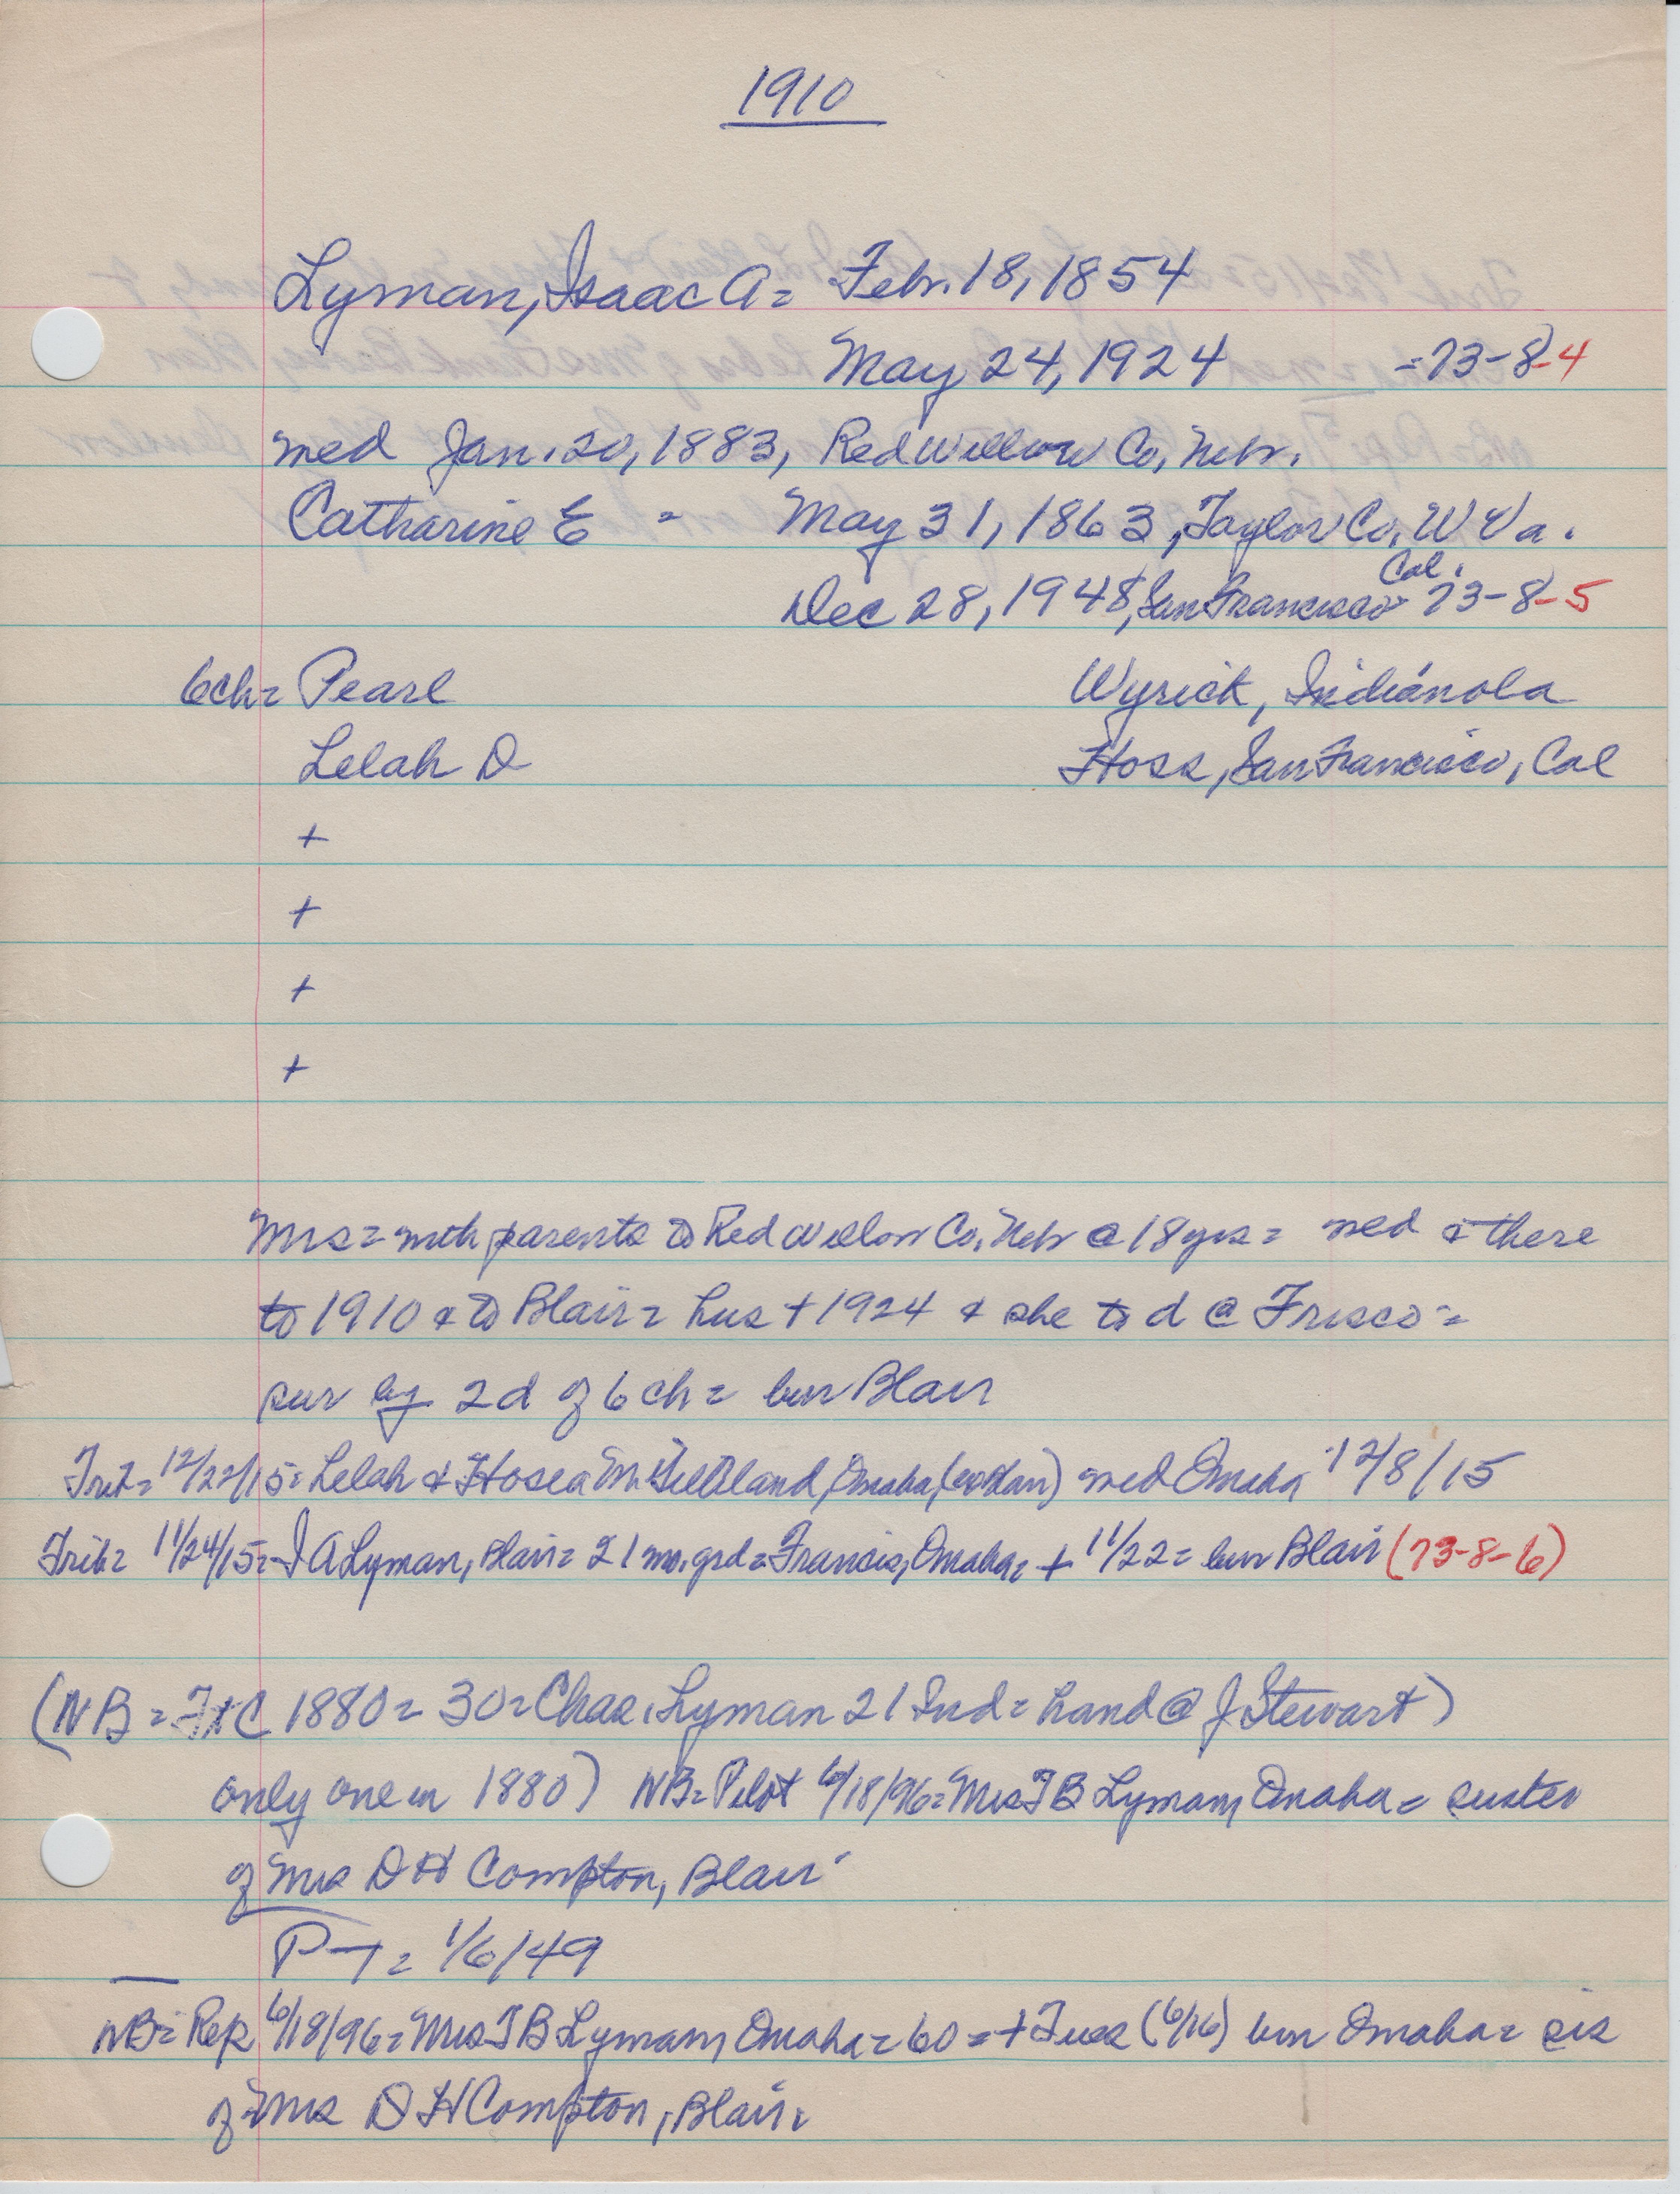 1910
Lyman, Isaac A = Febr. 18, 1854
May 24, 1924 = 73-8-4
med Jan. 20, 1883, Red Willow Co, Nebr.
Catharine E = May 31, 1863, Taylor Co, W Va.
Cal.
Dec 28, 1948, San Francisco 73-8-5
6ch= Pearl Wyrick, Indianola
Lelah D Hoss, San Francisco, Cal
+
+
+
+
Mrs = with parents to Red Willow Co, Nebr @ 18 yrs = med & there
to 1910 & to Blair = hus + 1924 & she to d @ Frisco =
sur by 2 d of 6 ch = bur Blair
Trib = 12/22/15 = Lelah & Hosea Omaha, med Omaha 12/8/15
Trib = 11/24/15 = I A Lyman, Blair = 21 mo. grd = Francis, Omaha = + 11/22 = bur Blair (73-8-6)
(NB = C 1880 = 30 = Chas. Lyman 21 Ind = hand @ J Stewart)
only one in 1880) NB = Pilot 6/18/96 = Mrs T B Lyman, Omaha = sister
of Mrs D H Compton, Blair
P-T = 1/6/49
NB = Rep 6/18/96 = Mrs T B Lyman, Omaha = 60 = + Tues (6/16) bur Omaha = sis
of Mrs D H Compton, Blair.